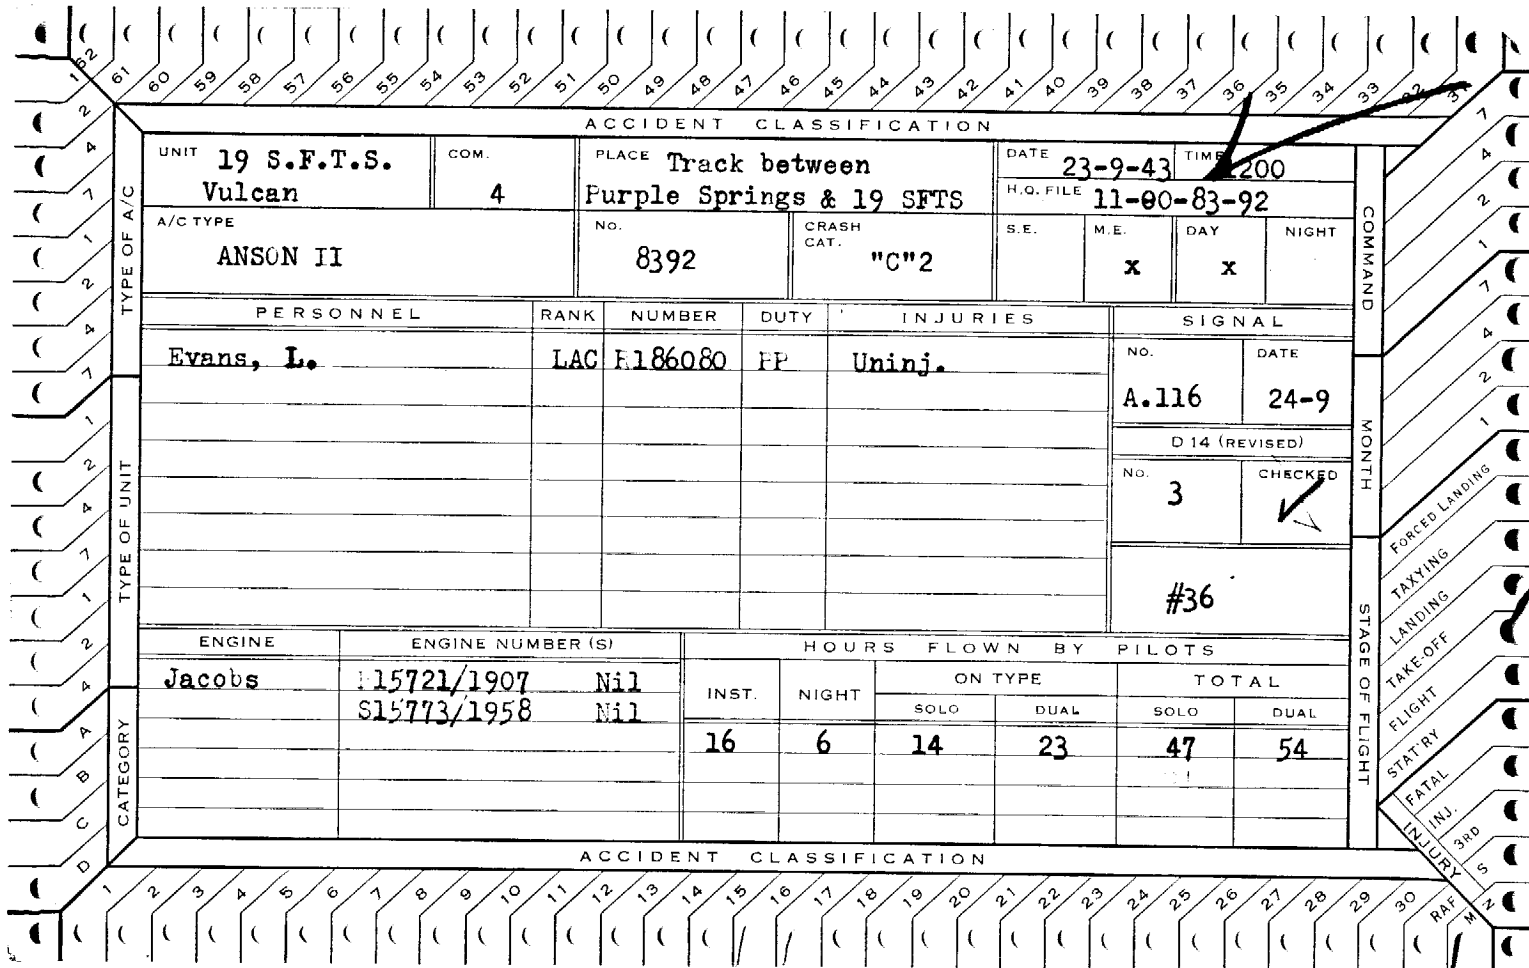 62 61 60 59 58 57 56 55 54 53 52 51 50 49 48 47 46 45 44 43 42 41 40 39 38 37 36 35 34 33 32 31
ACCIDENT CLASSIFICATION
UNIT 19 S.F.T.S.
Vulcan
COM.
4
PLACE Track between
Purple Springs & 19 SFTS
DATE 23-9-43
TIME 1200
H.Q. FILE 11-00-83-92
A/C TYPE
ANSON II
No.
8392
CRASH
CAT.
"C"2
S.E.
M.E.
x
DAY
x
NIGHT
PERSONNEL RANK NUMBER DUTY INJURIES
Evans, L. LAC R186080 PP Uninj.
SIGNAL
NO. DATE
A.116 24-9
D 14 (REVISED)
NO. CHECKED
3 ✓
#36
ENGINE ENGINE NUMBER(S)
Jacobs 15721/1907 Nil
S15773/1958 Nil
HOURS FLOWN BY PILOTS
INST. NIGHT ON TYPE TOTAL
SOLO DUAL SOLO DUAL
16 6 14 23 47 54
ACCIDENT CLASSIFICATION
1 2 3 4 5 6 7 8 9 10 11 12 13 14 15 16 17 18 19 20 21 22 23 24 25 26 27 28 29 30
RAF M
TYPE OF A/C
1 2 4 7 1 2 4 7
TYPE OF UNIT
1 2 4 7 1 2 4
CATEGORY
A B C D
COMMAND
7 4 2 1
MONTH
7 4 2 1
STAGE OF FLIGHT
FORCED LANDING
TAXYING
LANDING
TAKE-OFF
FLIGHT
STAT'RY
INJURY
FATAL
INJ.
3RD
S
N